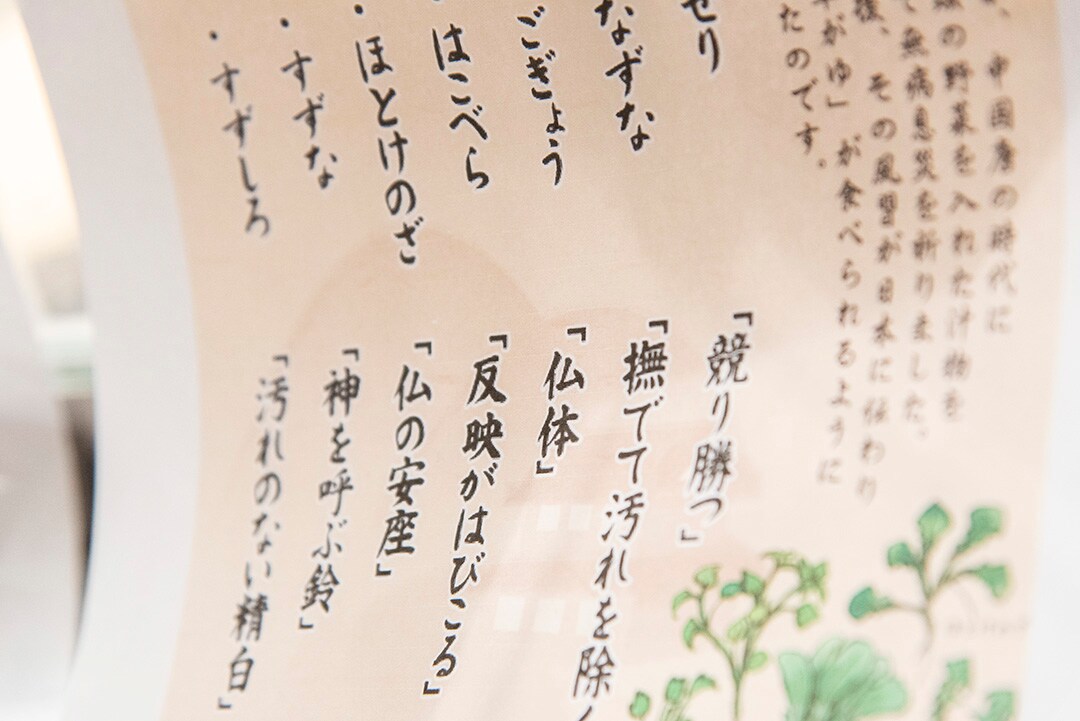 、中国唐の時代に
の野菜を入れた汁物を
て無病息災を祈りました。
後、その風習が日本に伝わり
がゆ」が食べられるように
たのです。
せり
「競り勝つ」
なずな
「撫でて汚れを除
ごぎょう
「仏体」
・はこべら
「反映がはびこる」
・ほとけのざ
「仏の安座」
・すずな
「神を呼ぶ鈴」
・すずしろ
「汚れのない精白」